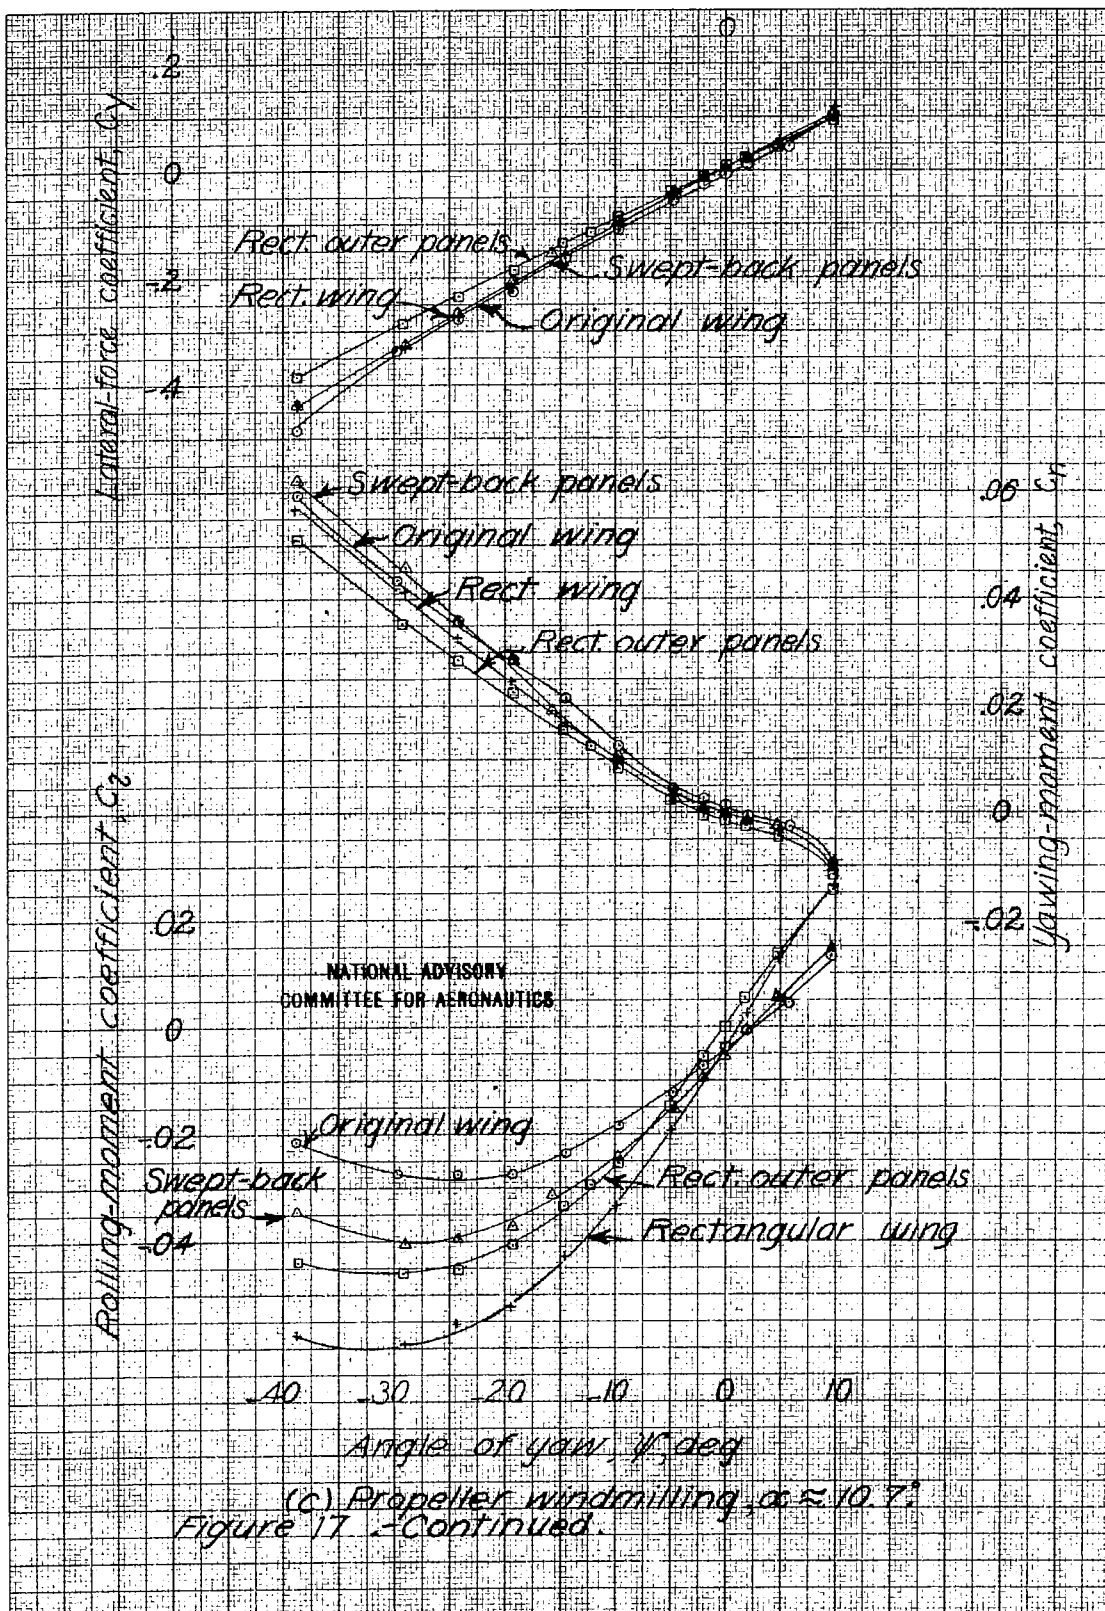 0
.2
0
-.2
-.4
Lateral-force coefficient, Cy
Rect. outer panels
Swept-back panels
Rect. wing
Original wing
Swept-back panels
Original wing
Rect. wing
Rect. outer panels
.06
.04
.02
0
-.02
Yawing-moment coefficient, Cn
.02
0
-.02
-.04
Rolling-moment coefficient, Cl
NATIONAL ADVISORY
COMMITTEE FOR AERONAUTICS
Original wing
Swept-back
panels
Rect. outer panels
Rectangular wing
-40 -30 -20 -10 0 10
Angle of yaw, ψ, deg
(c) Propeller windmilling, α ≈ 10.7°.
Figure 17 .-Continued.